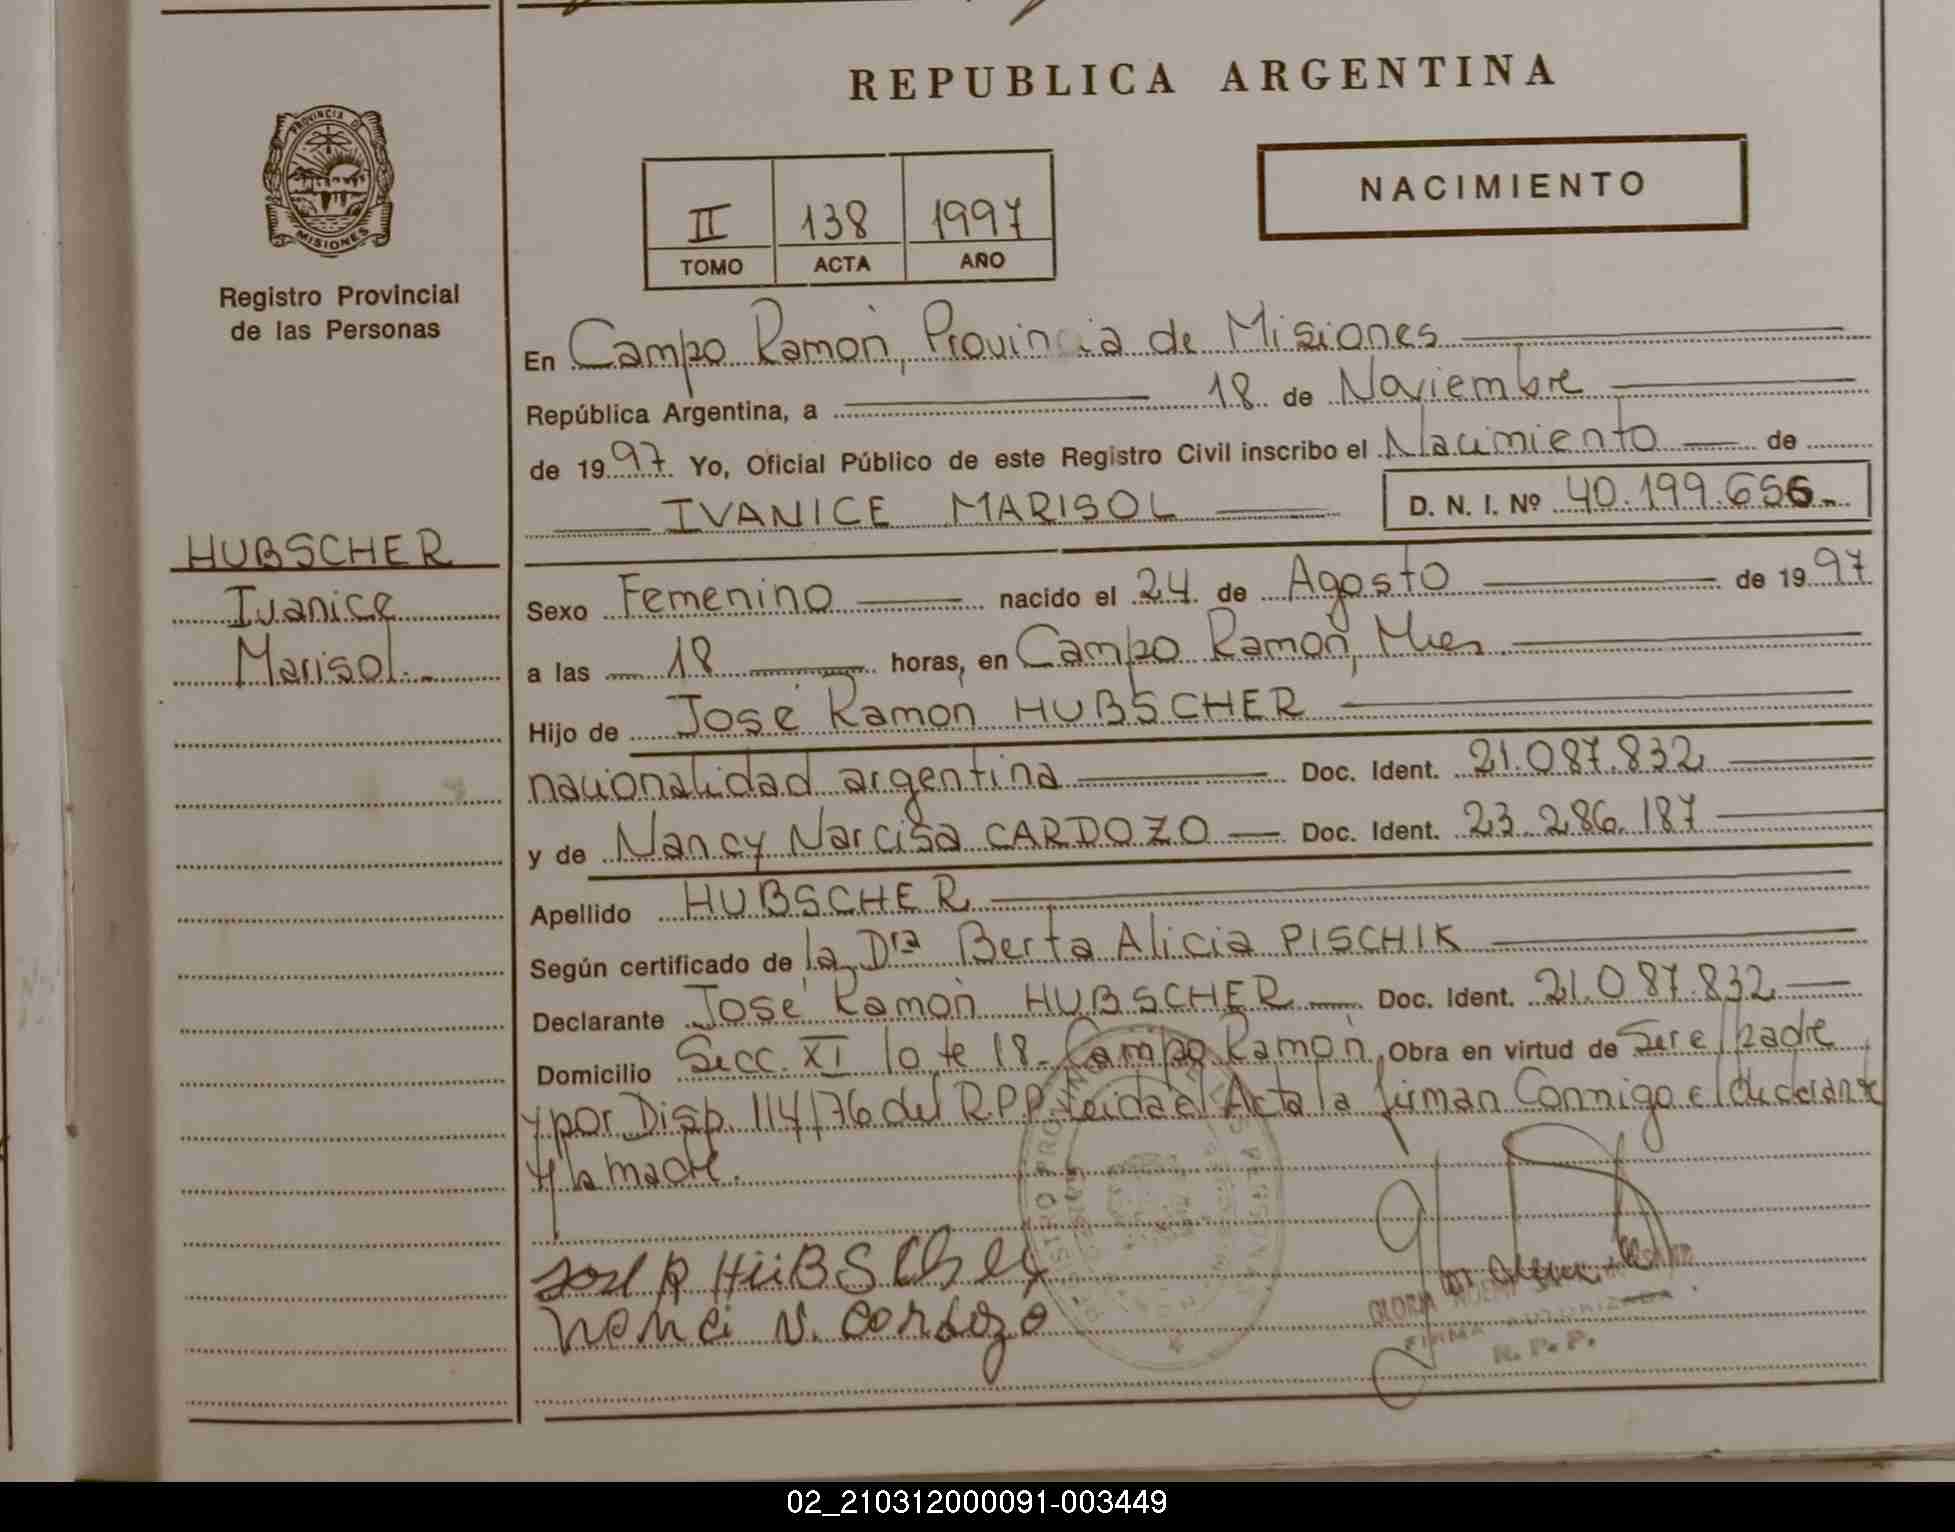 REPUBLICA ARGENTINA
PROVINCIA DE
MISIONES
Registro Provincial
de las Personas
NACIMIENTO
II 138 1997
TOMO ACTA AÑO
En Campo Ramón, Provincia de Misiones
República Argentina, a 18 de Noviembre
de 1997 Yo, Oficial Público de este Registro Civil inscribo el Nacimiento de
IVANICE MARISOL D. N. I. Nº 40.199.656.-
HUBSCHER
Ivanice
Marisol.-
Sexo Femenino nacido el 24 de Agosto de 1997
a las 18 horas, en Campo Ramón, Mnes
Hijo de José Ramón HUBSCHER
nacionalidad argentina Doc. Ident. 21.087.832
y de Nancy Narcisa CARDOZO Doc. Ident. 23.286.187
Apellido HUBSCHER
Según certificado de la Dra Berta Alicia PISCHIK
Declarante José Ramón HUBSCHER Doc. Ident. 21.087.832
Domicilio Secc. XI lote 18- Campo Ramón, Obra en virtud de Ser el padre
y por Disp. 114/76 del R.P.P. Leida el Acta la firman Conmigo el declarante
y la madre.
José R HÜBSCher
Nanci N. Cardozo
GLORIA NOEMI
FIRMA AUTORIZADA
R. P. P.
02_210312000091-003449